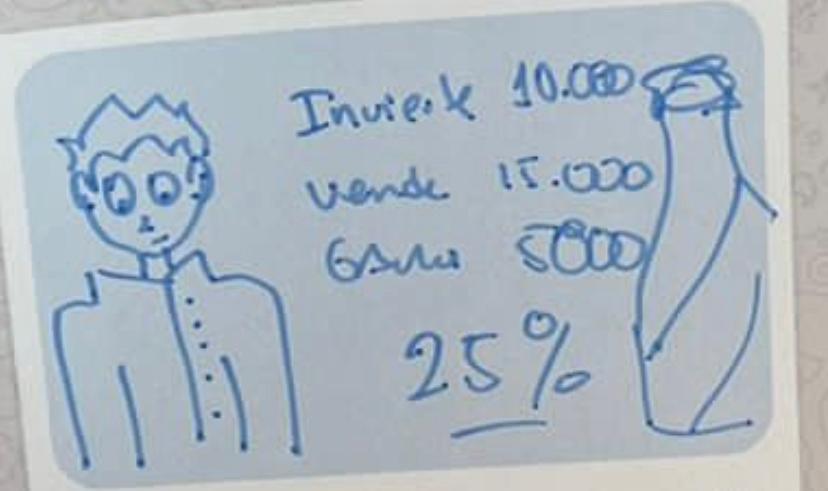 Invierte 10.000
vende 15.000
Gano 5000
25%